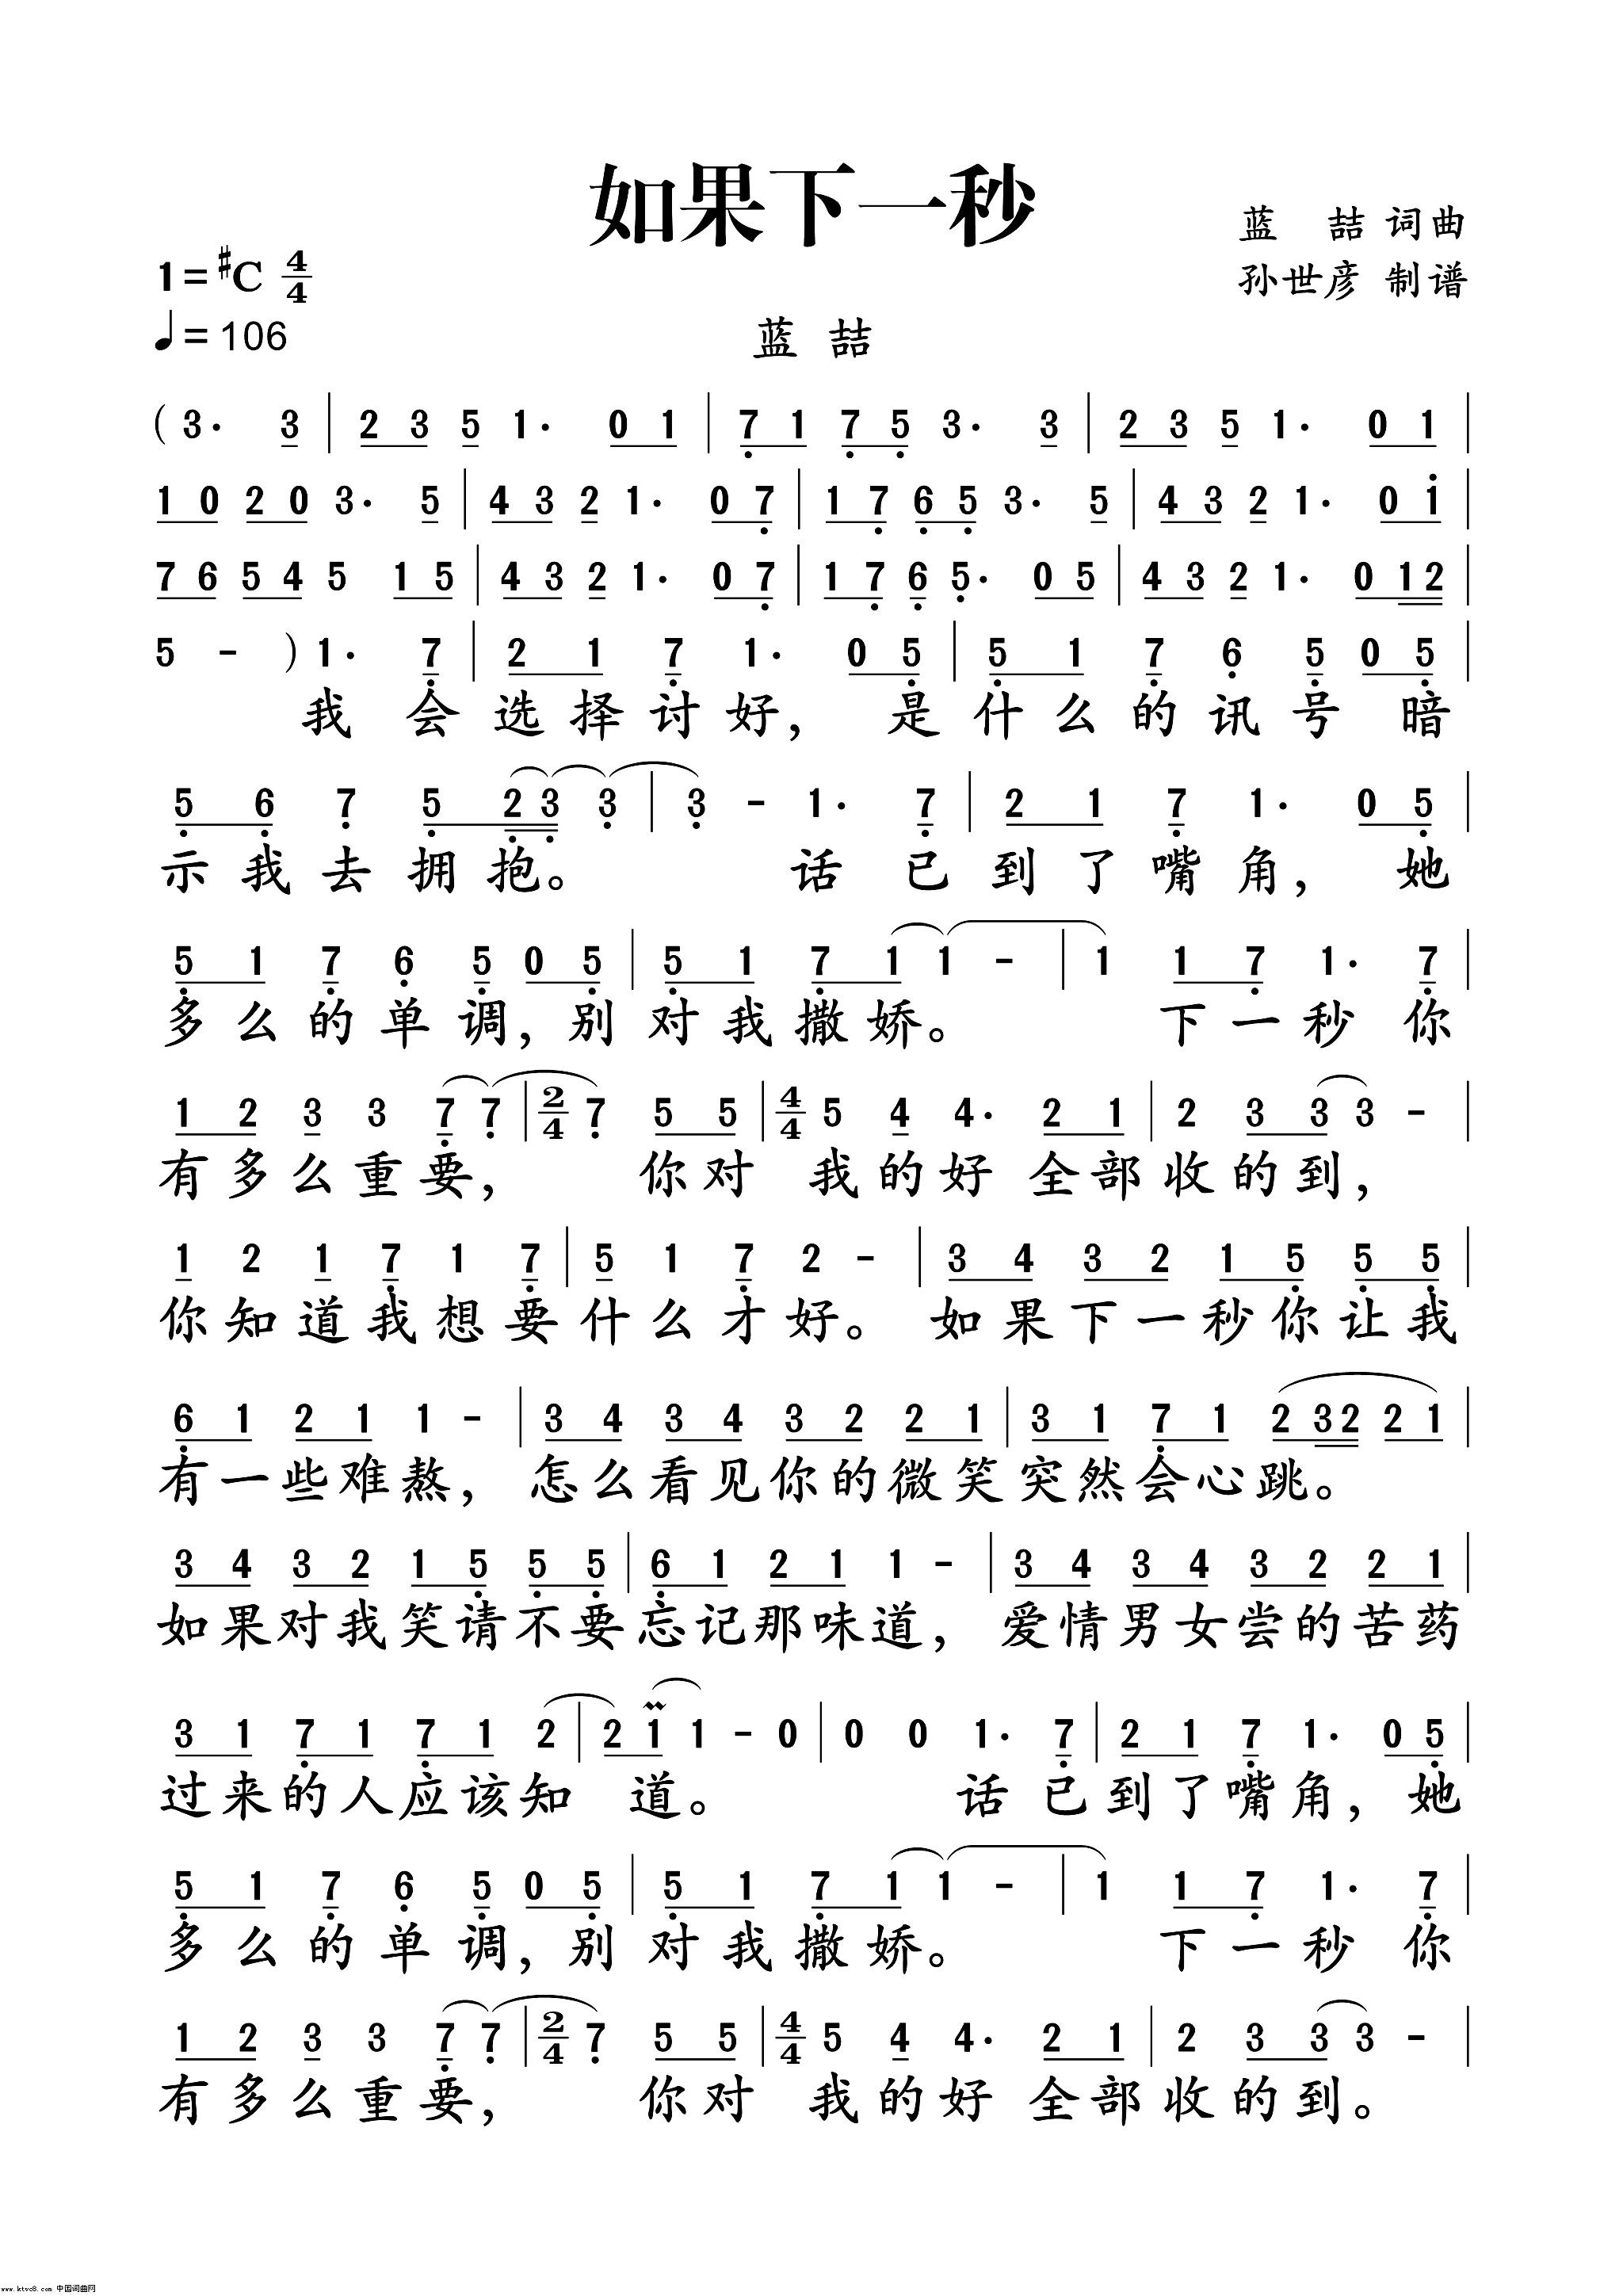 如果下一秒
蓝 喆 词曲
1=#C 4/4
孙世彦 制谱
♩= 106
蓝 喆
( 3· 3 | 2 3 5 1· 0 1 | 7̣ 1 7̣ 5̣ 3· 3 | 2 3 5 1· 0 1 |
1 0 2 0 3· 5 | 4 3 2 1· 0 7̣ | 1 7̣ 6̣ 5̣ 3· 5 | 4 3 2 1· 0 1̇ |
7 6 5 4 5 1 5 | 4 3 2 1· 0 7̣ | 1 7̣ 6̣ 5̣· 0 5 | 4 3 2 1· 0 1 2 |
5 - ) 1· 7̣ | 2 1 7̣ 1· 0 5̣ | 5̣ 1 7̣ 6̣ 5̣ 0 5̣ |
我 会 选 择 讨 好, 是 什 么 的 讯 号 暗
5̣ 6̣ 7̣ 5̣ 2̣ 3̣ 3̣ | 3̣ - 1· 7̣ | 2 1 7̣ 1· 0 5̣ |
示 我 去 拥 抱。 话 已 到 了 嘴 角, 她
5̣ 1 7̣ 6̣ 5̣ 0 5̣ | 5̣ 1 7̣ 1 1 - | 1 1 7̣ 1· 7̣ |
多 么 的 单 调, 别 对 我 撒 娇。 下 一 秒 你
1 2 3 3 7̣ 7̣ | 2/4 7̣ 5 5 | 4/4 5 4 4· 2 1 | 2 3 3 3 - |
有 多 么 重 要, 你 对 我 的 好 全 部 收 的 到,
1 2 1 7̣ 1 7̣ | 5̣ 1 7̣ 2 - | 3 4 3 2 1 5̣ 5̣ 5̣ |
你 知 道 我 想 要 什 么 才 好。 如 果 下 一 秒 你 让 我
6̣ 1 2 1 1 - | 3 4 3 4 3 2 2 1 | 3 1 7̣ 1 2 3 2 2 1 |
有 一 些 难 熬, 怎 么 看 见 你 的 微 笑 突 然 会 心 跳。
3 4 3 2 1 5̣ 5̣ 5̣ | 6̣ 1 2 1 1 - | 3 4 3 4 3 2 2 1 |
如 果 对 我 笑 请 不 要 忘 记 那 味 道, 爱 情 男 女 尝 的 苦 药
3 1 7̣ 1 7̣ 1 2 | 2 1 1 - 0 | 0 0 1· 7̣ | 2 1 7̣ 1· 0 5̣ |
过 来 的 人 应 该 知 道。 话 已 到 了 嘴 角, 她
5̣ 1 7̣ 6̣ 5̣ 0 5̣ | 5̣ 1 7̣ 1 1 - | 1 1 7̣ 1· 7̣ |
多 么 的 单 调, 别 对 我 撒 娇。 下 一 秒 你
1 2 3 3 7̣ 7̣ | 2/4 7̣ 5 5 | 4/4 5 4 4· 2 1 | 2 3 3 3 - |
有 多 么 重 要, 你 对 我 的 好 全 部 收 的 到。
www.ktvc8.com 中国词曲网